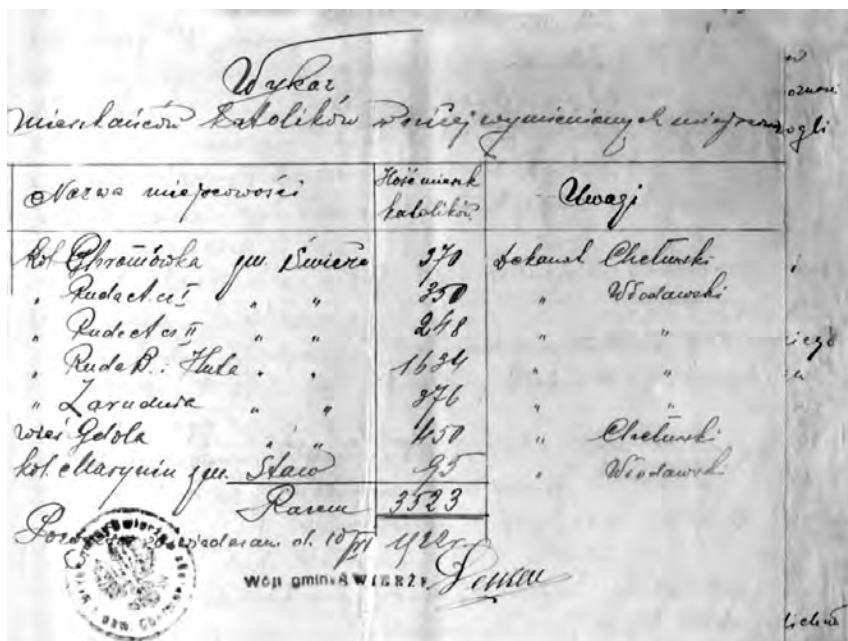 Wykaz
mieszkańców katolików w niżej wymienionych
Nazwa miejscowości Ilość mieszk katolików. Uwagi
kol. Chromówka gm. Świerże 370 Dekanat Chełmski
" Ruda cz I " " 350 " Włodawski
" Ruda cz II " " 248 " "
" Ruda B. i Huta " " 1634 " "
" Zarudnia " " 376 " "
wieś Gdola " " 450 " Chełmski
kol. Marynin gm. Staw 95 " Włodawski
Razem 3523
10 1922 r.
Wójt gminy ŚWIERŻE